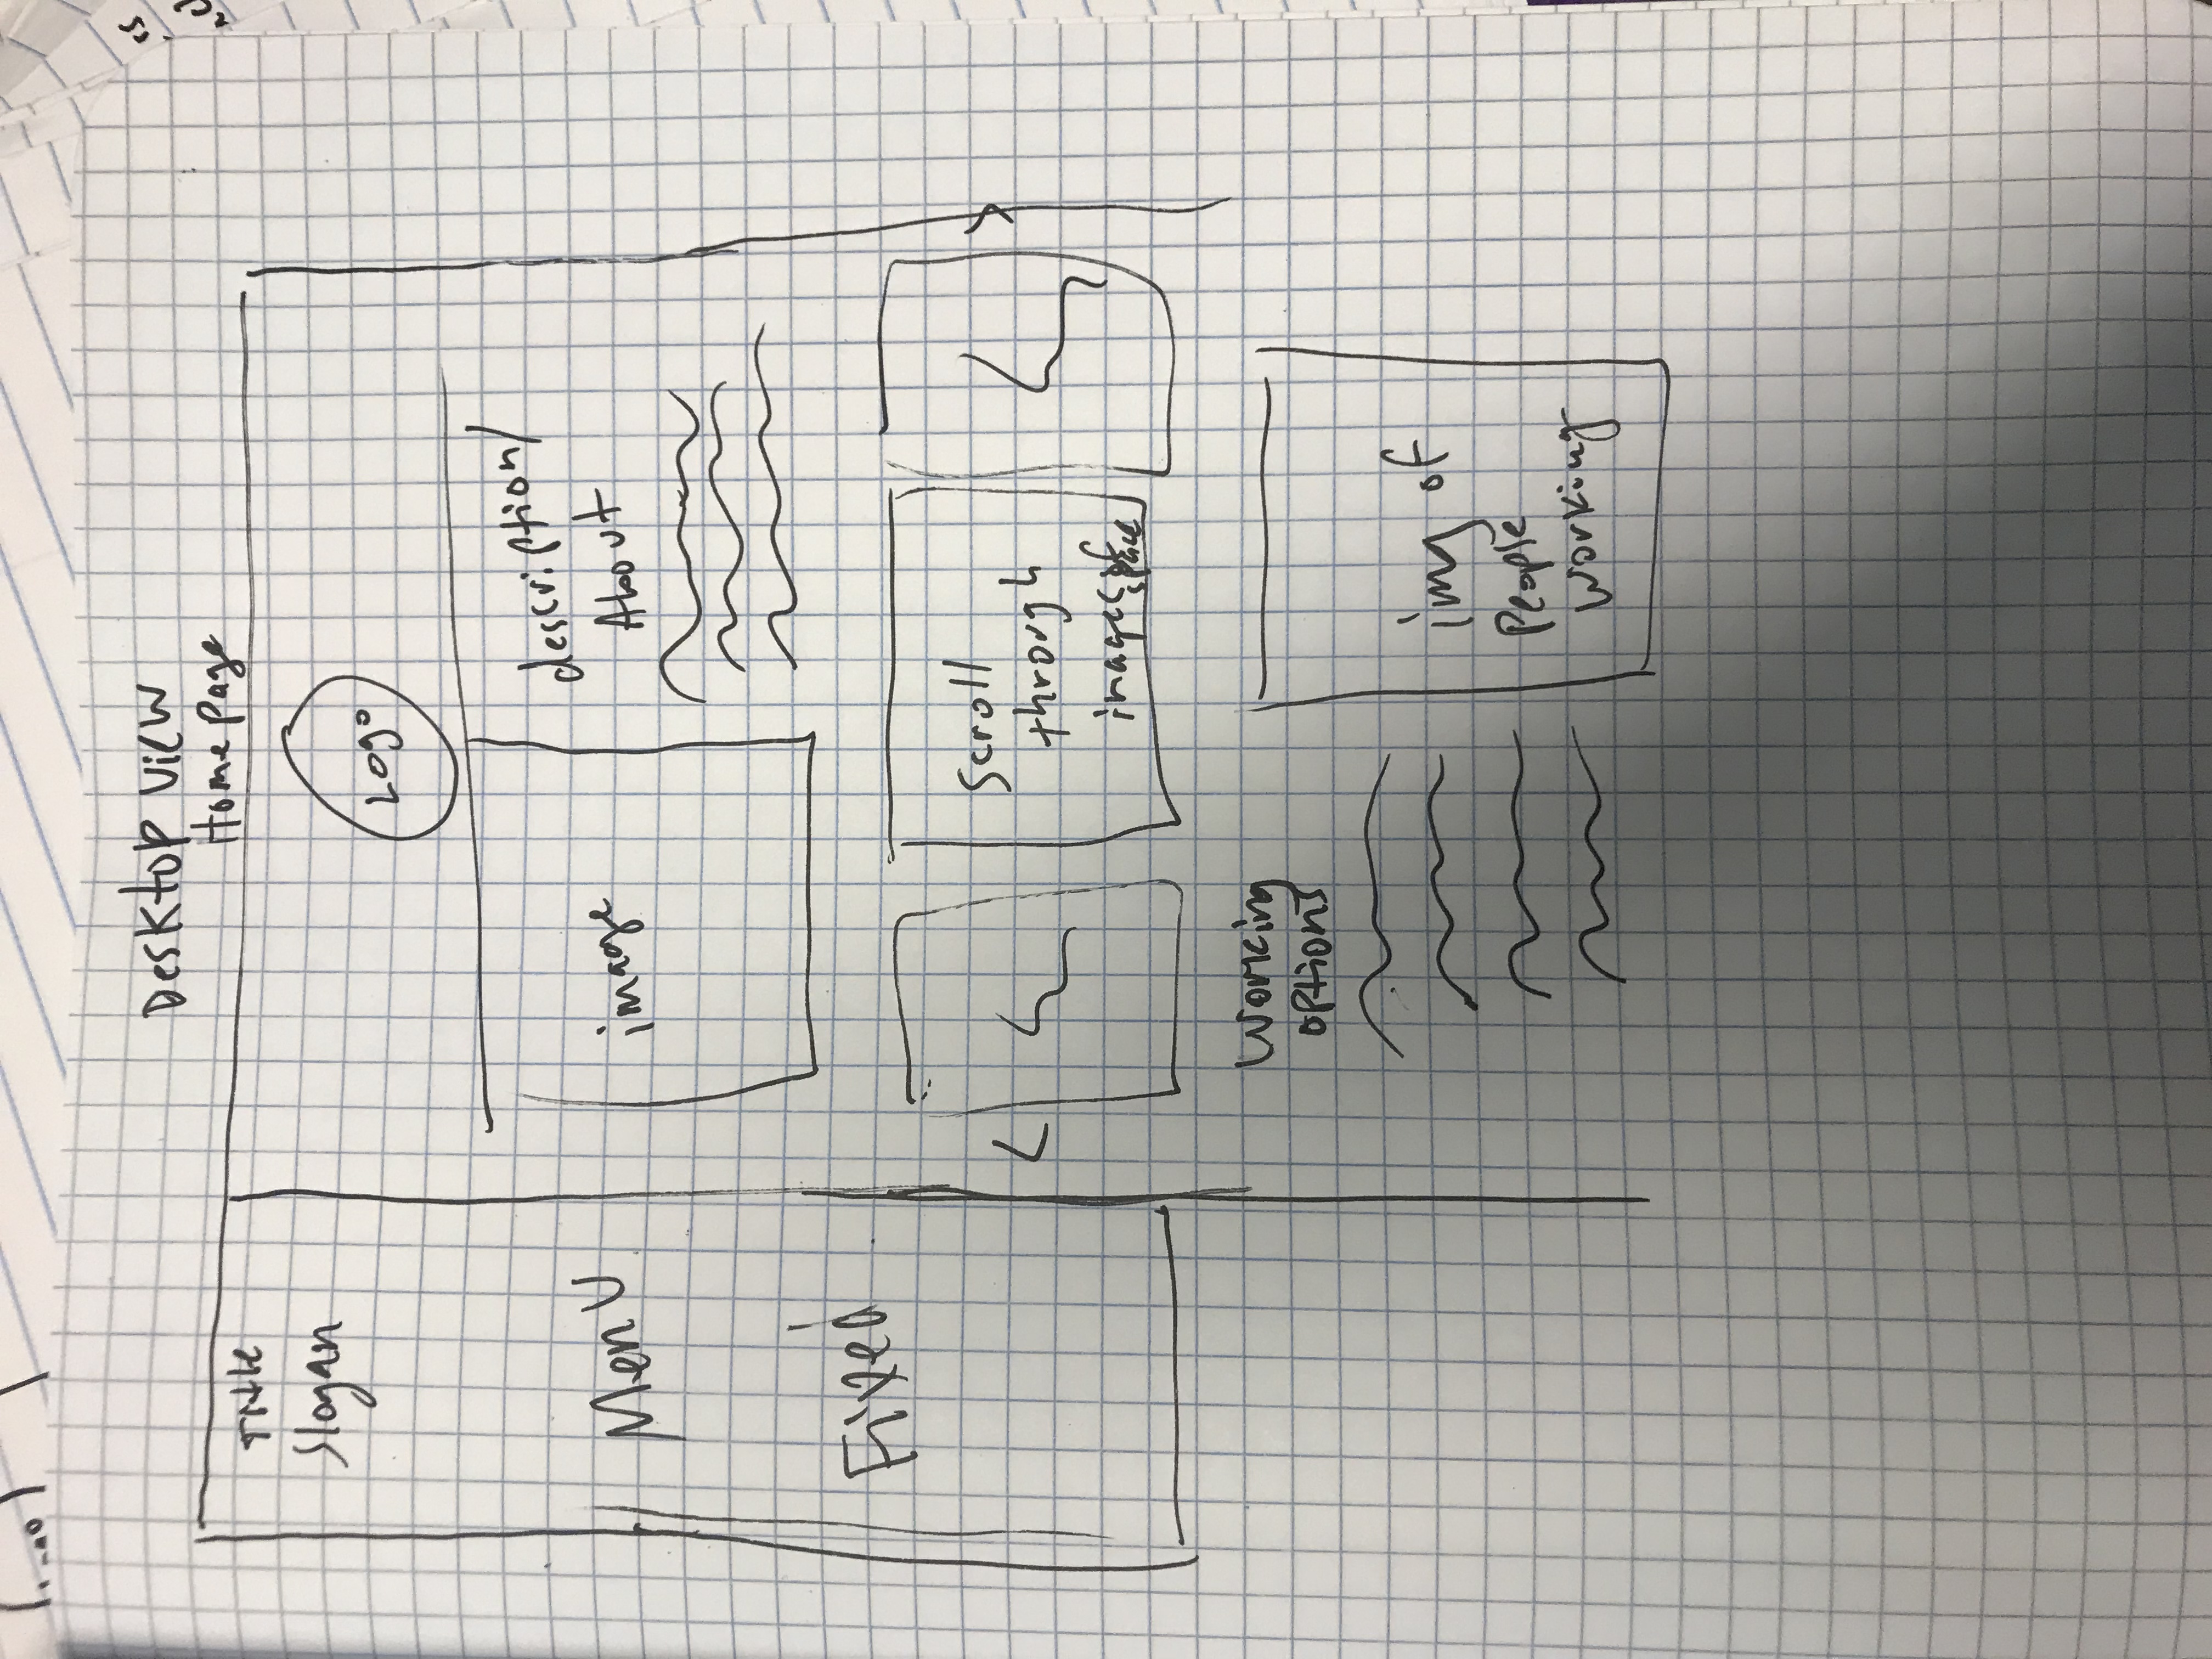 Desktop View
Home Page
Title
Slogan
Menu
Fixed
Logo
image
description/
About
<
Scroll
through
images of
space
>
Working
options
img of
People
Working